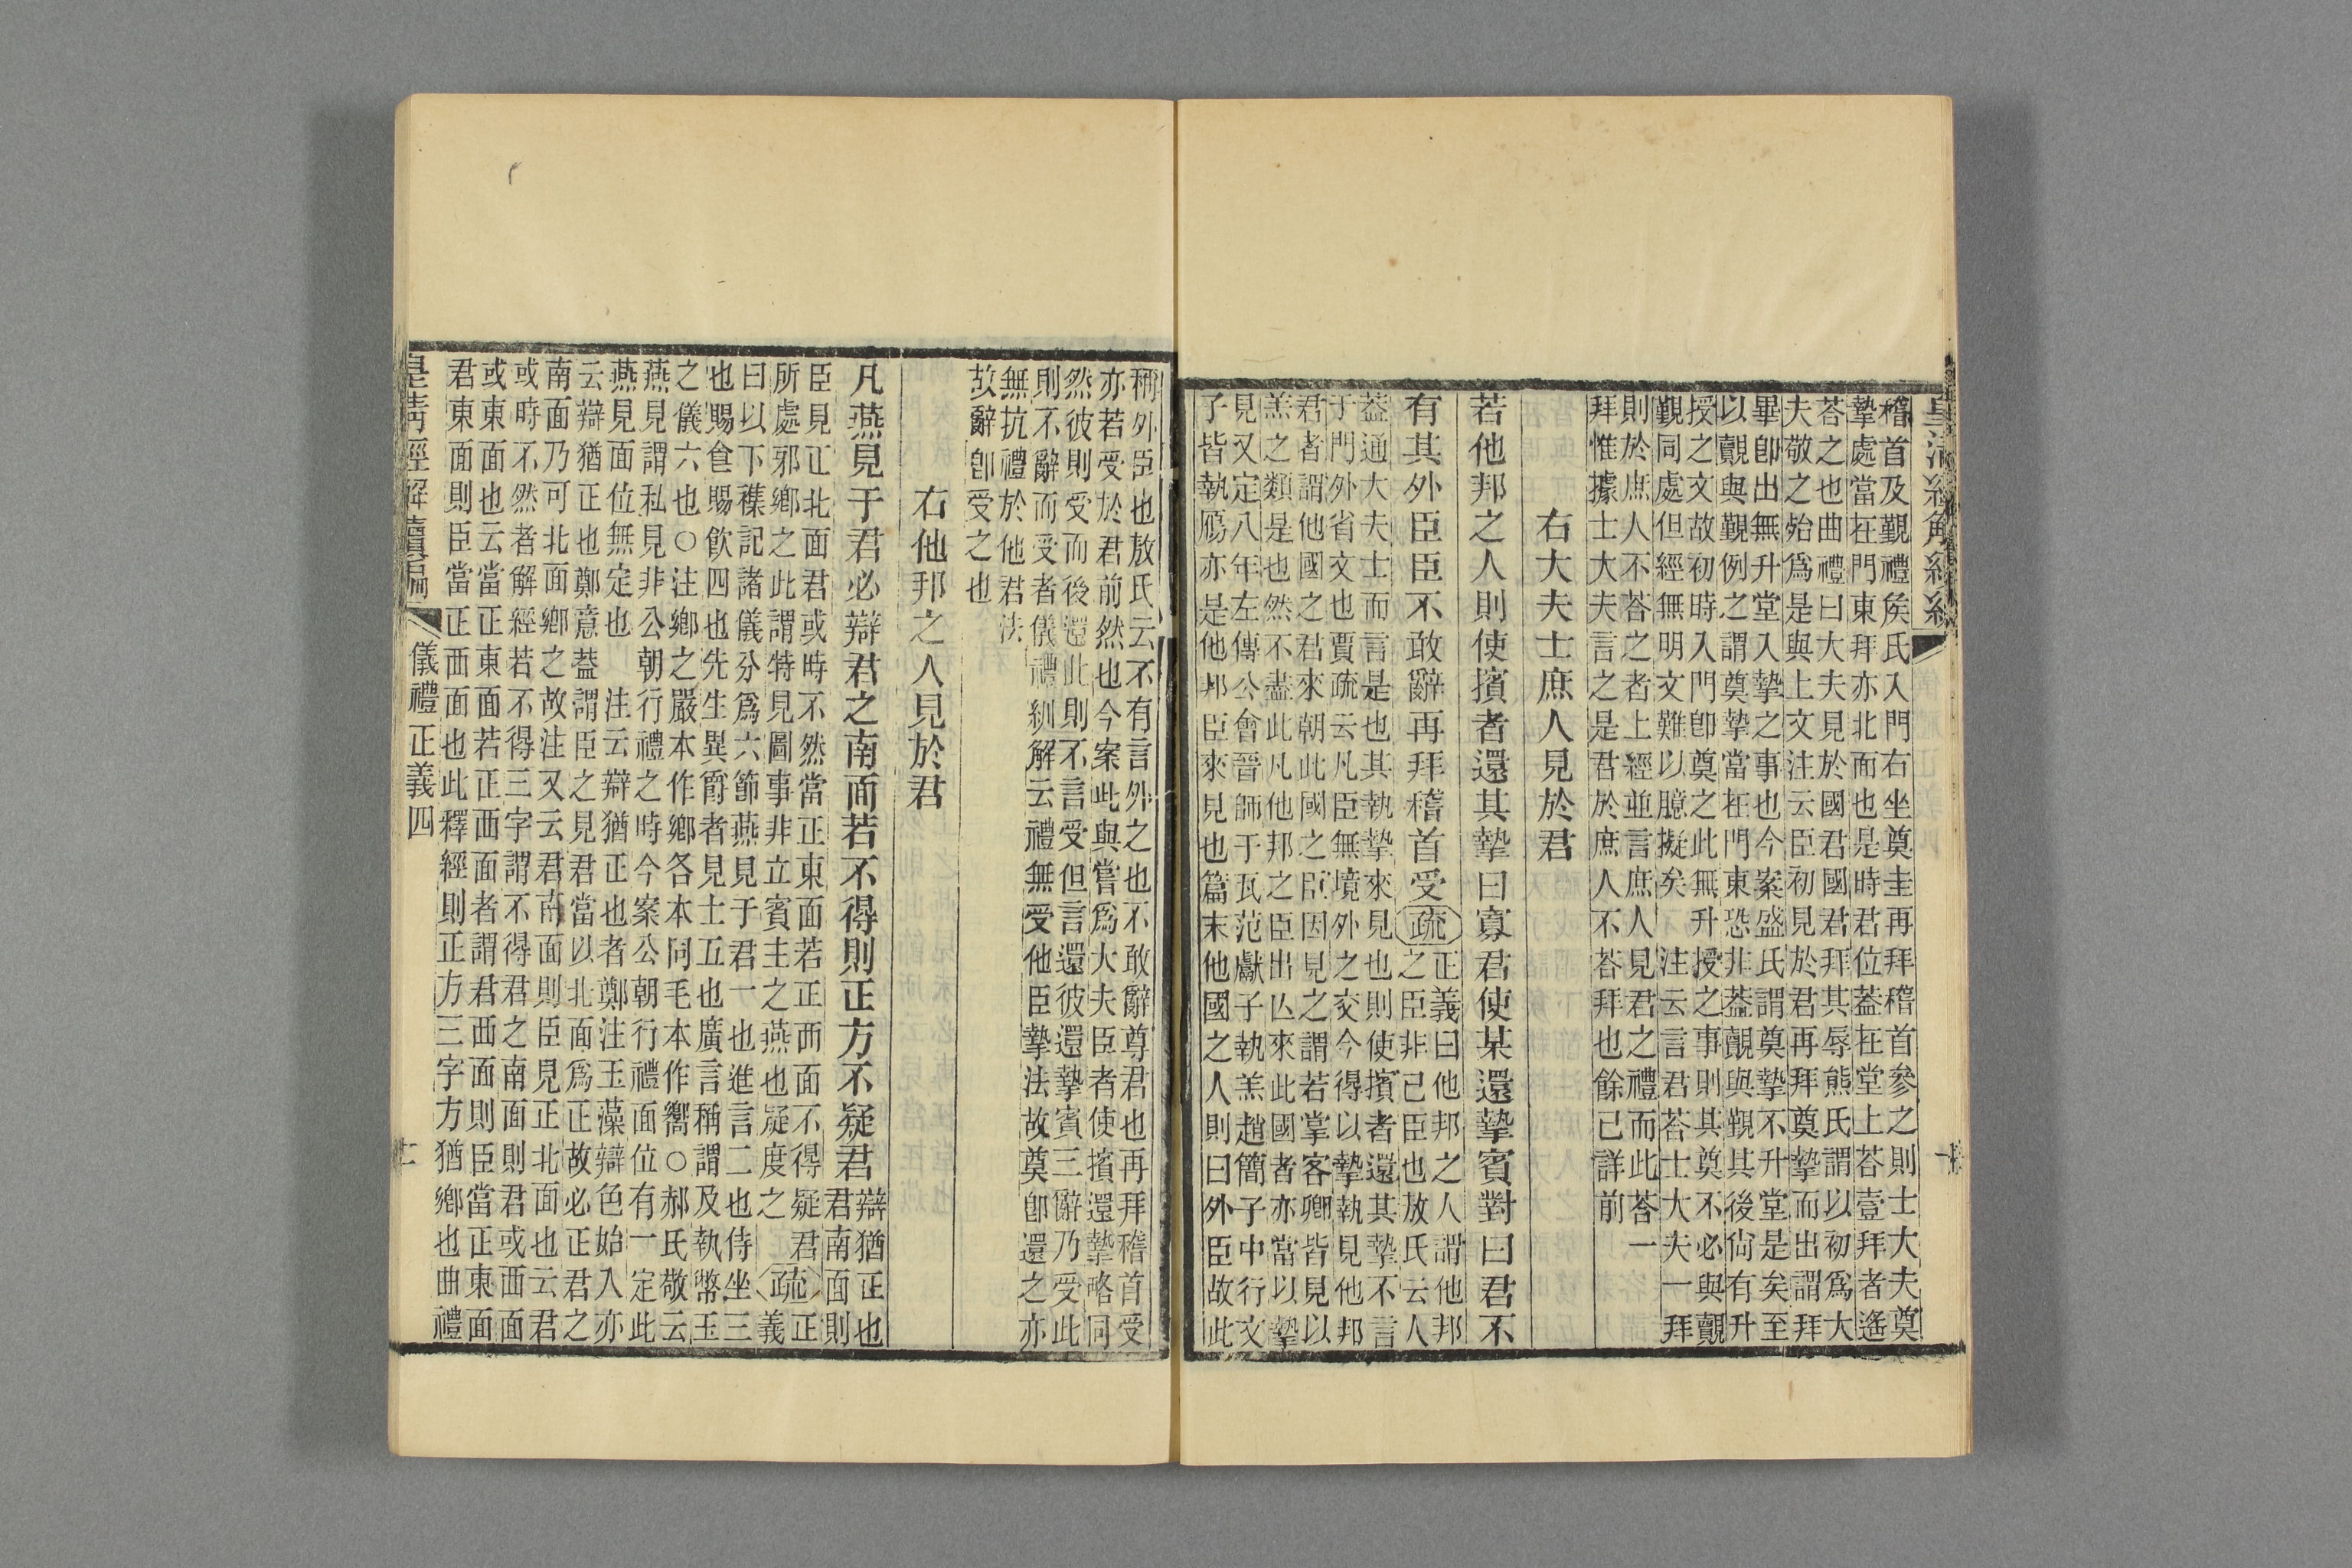 皇清經解續編
稽首及覲禮矦氏入門右坐奠圭再拜稽首參之則士大夫奠
摯處當在門東拜亦北面也是時君位葢在堂上荅壹拜者遙
荅之也曲禮曰大夫見於國君國君拜其辱熊氏謂以初爲大
夫敬之殆爲是與上文注云臣初見於君再拜奠摯而出謂拜
畢卽出無升堂入摯之事也今案盛氏謂奠摯不升堂是矣至
以覿與覲例之謂奠摯當在門東恐非葢覿與覲其後尙有升
授之文故初時入門卽奠之此無升授之事則其奠不必與覿
覲同處但經無明文難以臆擬矣　注云言君荅士大夫一拜
則於庶人不荅之者上經並言庶人見君之禮而此荅一
拜惟據士大夫言之是君於庶人不荅拜也餘已詳前
右大夫士庶人見於君
若他邦之人則使擯者還其摯曰寡君使某還摯賓對曰君不
有其外臣臣不敢辭再拜稽首受疏
正義曰他邦之人謂他邦
之臣非己臣也敖氏云人
葢通大夫士而言是也其執摯來見也則使擯者還其摯不言
于門外省文也賈疏云凡臣無境外之交今得以摯執見他邦
君者謂他國之君來朝此國之臣因見之謂若掌客卿皆見以
羔之類是也然不盡此凡他邦之臣出亾來此國者亦當以摯
見又定八年左傳公會晉師于瓦范獻子執羔趙簡子中行文
子皆執鴈亦是他邦臣來見也篇末他國之人則曰外臣故此
稱外臣也敖氏云不有言外之也不敢辭尊君也再拜稽首受
亦若受於君前然也今案此與嘗爲大夫臣者使擯還摯略同
然彼則受而後還此則不言受但言還彼還摯賓三辭乃受此
則不辭而受者儀禮紃解云禮無受他臣摯法故奠卽還之亦
無抗禮於他君法
故辭卽受之也
右他邦之人見於君
凡燕見于君必辯君之南面若不得則正方不疑君
辯猶正也
君南面則
臣見正北面君或時不然當正東面若正西面不得疑君疏正
所處邪鄉之此謂特見圖事非立賓主之燕也疑度之　　義
曰以下襍記諸儀分爲六節燕見于君一也進言二也侍坐三
也賜食賜飮四也先生異爵者見士五也廣言稱謂及執幣玉
之儀六也○注鄉之嚴本作鄉各本同毛本作嚮○郝氏敬云
燕見謂私見非公朝行禮之時今案公朝行禮面位有一定此
燕見面位無定也　注云辯猶正也者鄭注玉藻辯色始入亦
云辯猶正也鄭意葢謂臣之見君當以北面爲正故必正君之
南面乃可北面鄉之故注又云君南面則臣見正北面也云君
或時不然者解經若不得三字謂不得君之南面則君或西面
或東面也云當正東面若正西面者謂君西面則臣當正東面
君東面則臣當正西面也此釋經則正方三字方猶鄉也曲禮
皇淸經解續編　儀禮正義四